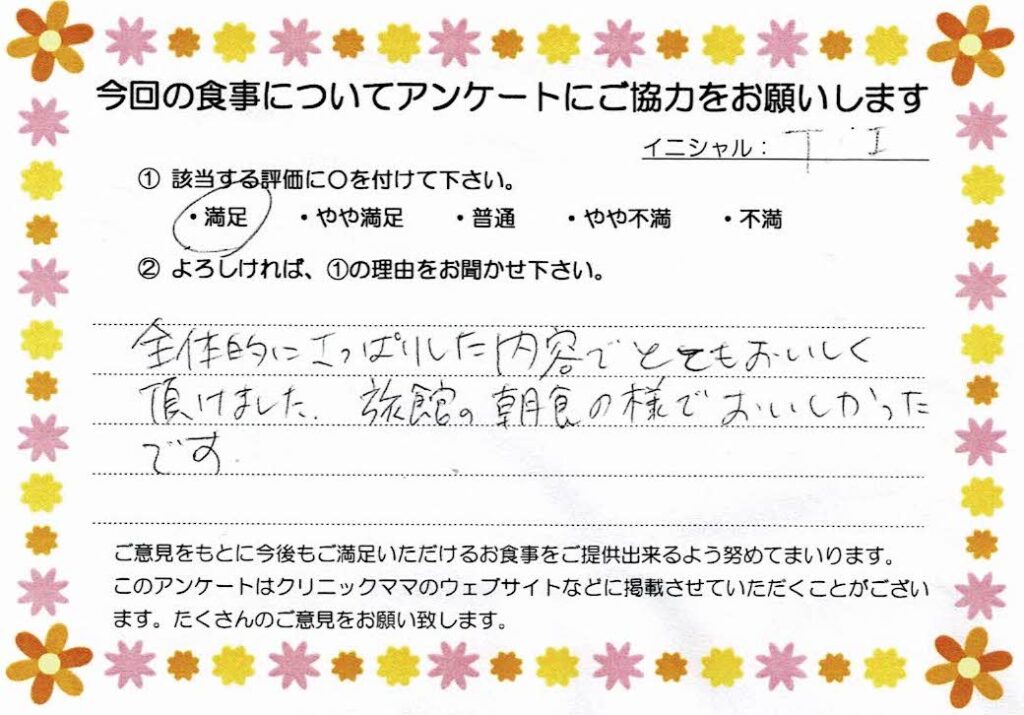 今回の食事についてアンケートにご協力をお願いします
イニシャル： T・I
① 該当する評価に〇を付けて下さい。
・満足　・やや満足　・普通　・やや不満　・不満
② よろしければ、①の理由をお聞かせ下さい。
全体的にさっぱりした内容でとてもおいしく
頂けました. 旅館の朝食の様でおいしかった
です.
ご意見をもとに今後もご満足いただけるお食事をご提供出来るよう努めてまいります。
このアンケートはクリニックママのウェブサイトなどに掲載させていただくことがござい
ます。たくさんのご意見をお願い致します。